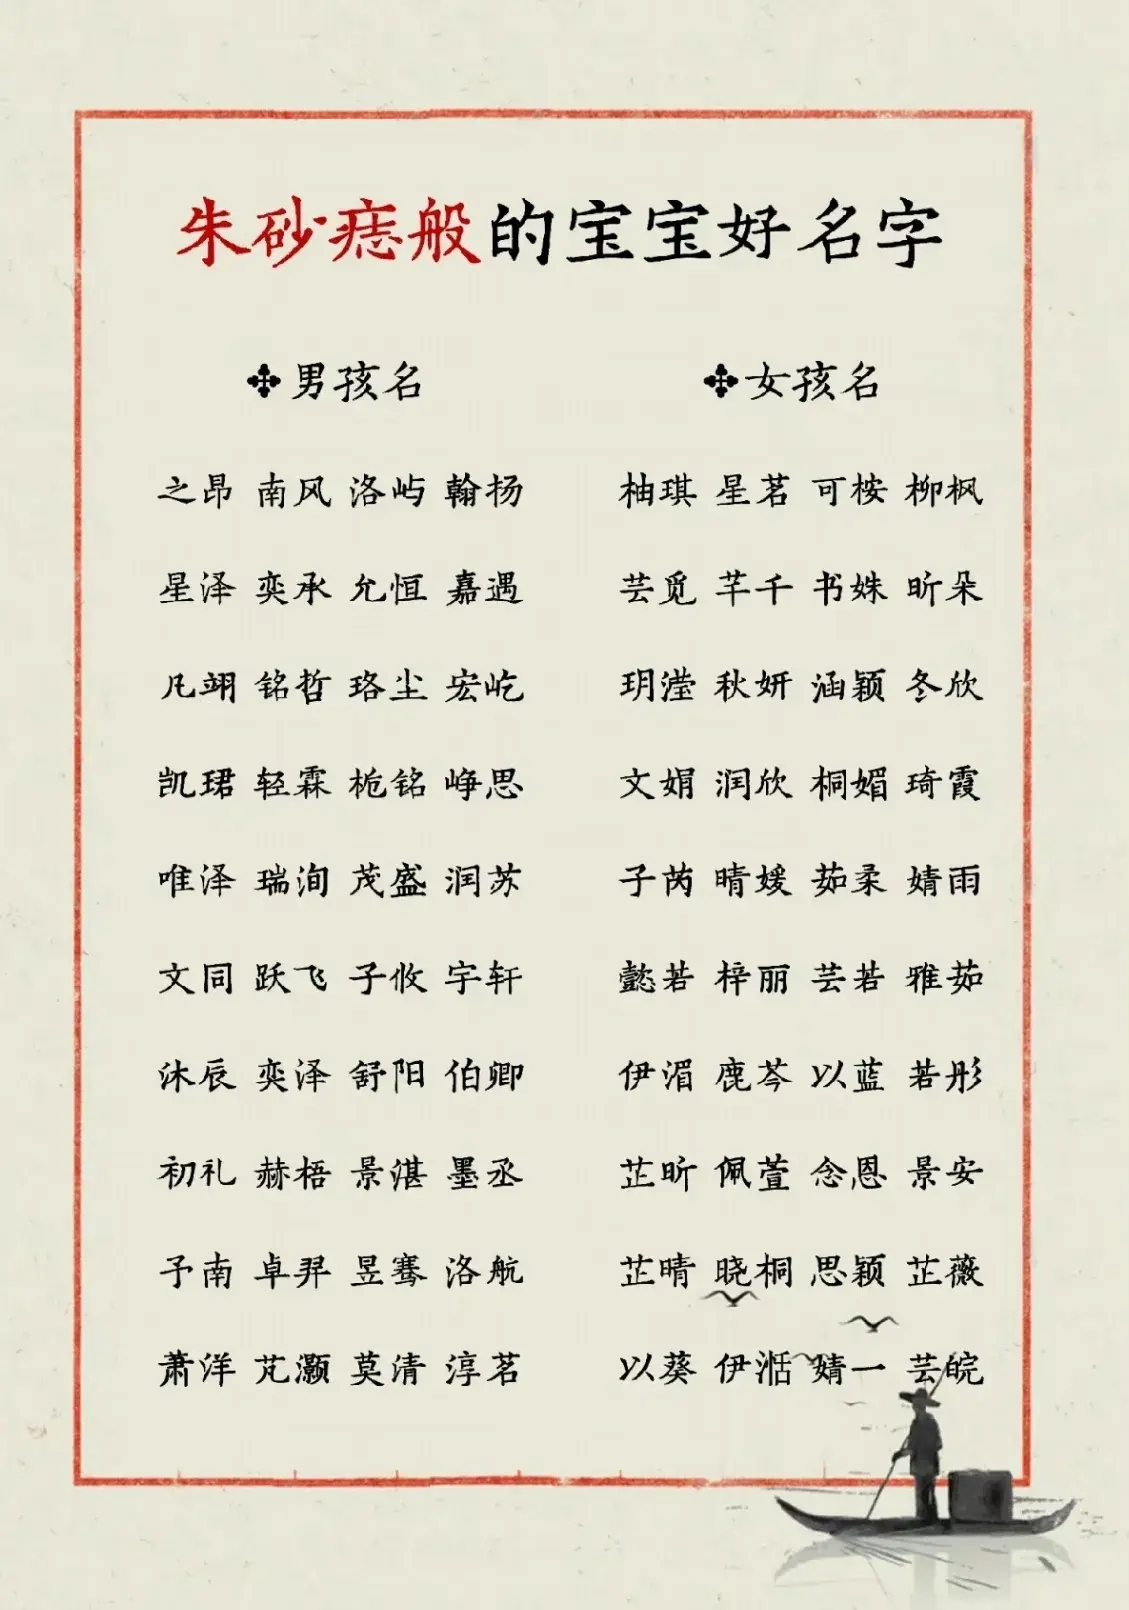 朱砂痣般的宝宝好名字
男孩名
之昂 南风 洛屿 翰扬
星泽 奕承 允恒 嘉遇
凡翊 铭哲 珞尘 宏屹
凯珺 轻霖 栀铭 峥思
唯泽 瑞洵 茂盛 润苏
文同 跃飞 子攸 宇轩
沐辰 奕泽 舒阳 伯卿
初礼 赫梧 景湛 墨丞
予南 卓羿 昱骞 洛航
萧洋 芃灏 莫清 淳茗
女孩名
柚琪 星茗 可桉 柳枫
芸觅 芊千 书姝 昕朵
玥滢 秋妍 涵颖 冬欣
文娟 润欣 桐媚 琦霞
子芮 晴媛 茹柔 婧雨
懿若 梓丽 芸若 雅茹
伊湄 鹿芩 以蓝 若彤
芷昕 佩萱 念恩 景安
芷晴 晓桐 思颖 芷薇
以葵 伊湉 婧一 芸皖